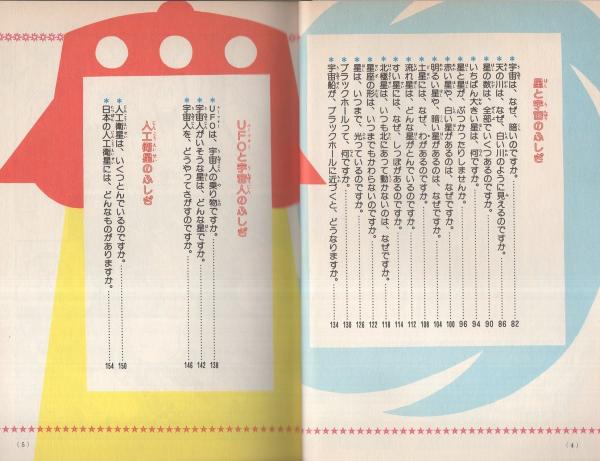 星と宇宙のふしぎ
*宇宙は、なぜ、暗いのですか。……82
*天の川は、なぜ、白い川のように見えるのですか。……86
*星の数は、全部でいくつあるのですか。……90
*いちばん大きい星は、何ですか。……94
*星と星が、ぶつかったりしませんか。……96
*赤い星や、白い星があるのは、なぜですか。……100
*明るい星や、暗い星があるのは、なぜですか。……104
*土星には、なぜ、わがあるのですか。……108
*流れ星は、どんな星がとんでいるのですか。……112
*すい星には、なぜ、しっぽがあるのですか。……114
*北極星は、いつも北にあって動かないのは、なぜですか。……118
*星座の形は、いつまでもかわらないのですか。……122
*星は、いつまで、光っているのですか。……126
*ブラックホールって、何ですか。……130
*宇宙船が、ブラックホールに近づくと、どうなりますか。……134
(4)
UFOと宇宙人のふしぎ
*UFOは、宇宙人の乗り物ですか。……138
*宇宙人がいそうな星は、どんな星ですか。……142
*宇宙人を、どうやってさがすのですか。……146
人工衛星のふしぎ
*人工衛星は、いくつとんでいるのですか。……150
*日本の人工衛星には、どんなものがありますか。……154
(5)